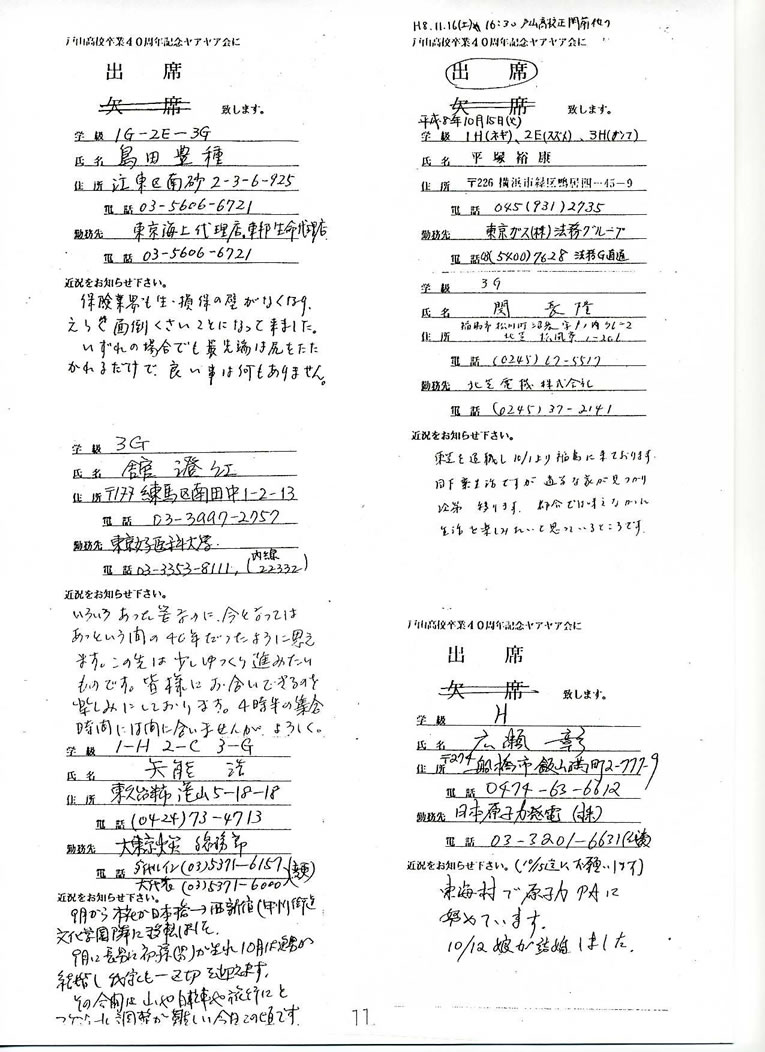 戸山高校卒業40周年記念ヤアヤア会に
出 席
欠 席 致します。
学 級 1G-2E-3G
氏 名 島田豊種
住 所 江東区南砂2-3-6-925
電 話 03-5606-6721
勤務先 東京海上代理店,東邦生命代理店
電 話 03-5606-6721
近況をお知らせ下さい。
保険業界も生・損保の壁がなくなり、
えらく面倒くさいことになって来ました。
いずれの場合でも最先端は尻をたた
かれるだけで、良い事は何もありません。
学 級 3G
氏 名 舘 澄江
住 所 〒177 練馬区南田中1-2-13
電 話 03-3997-2757
勤務先 東京女子医科大学
電 話 03-3353-8111, (内線22332)
近況をお知らせ下さい。
いろいろあった筈なのに、今となっては
あっという間の40年だったように思え
ます。この先は少しゆっくり進みたい
ものです。皆様にお会いできるのを
楽しみにしております。4時半の集合
時間には間に合いませんが、よろしく。
学 級 1-H 2-C 3-G
氏 名 矢能 浩
住 所 東久留米市滝山5-18-18
電 話 (0424)73-4713
勤務先 大東京火災
電 話 ダイヤルイン(03)5371-6157
大代表(03)5371-6000
近況をお知らせ下さい。
9月から本社が日本橋→西新宿(甲州街道
文化学園隣に移転しました。
9月に長男に初孫(男)が生れ10月には
結婚し 一区切を迎えます。
その合間に山や自転車や旅行にと
スケジュール調整が難しい今日この頃です。
H8.11.16(土) 16:30 戸山高校正門前
戸山高校卒業40周年記念ヤアヤア会に
出 席
欠 席 致します。
平成8年10月15日(火)
学 級 1H(スギ)、2E(スズメ)、3H
氏 名 平塚裕康
住 所 〒226 横浜市緑区鴨居四-45-9
電 話 045(931)2735
勤務先 東京ガス(株)法務グループ
電 話 03(5400)7628 法務G直通
学 級 3G
氏 名 関 長隆
住 所 福島市松川町
北芝 松風寮
電 話 (0245)67-5517
勤務先 北芝電機株式会社
電 話 (0245)37-2141
近況をお知らせ下さい。
東芝を退職し10/1より福島に来ております。
目下寮生活ですが適当な家が見つかり
次第 移ります。都会では味えなかった
生活を楽しみたいと思っているところです。
戸山高校卒業40周年記念ヤアヤア会に
出 席
欠 席 致します。
学 級 H
氏 名 広瀬 彰
住 所 〒274 船橋市飯山満町2-777-9
電 話 0474-63-6612
勤務先 日本原子力発電(株)
電 話 03-3201-6631
近況をお知らせ下さい。(10/5迄にお願いします)
東海村で原子力PAに
努めています。
10/12 娘が結婚しました。
11